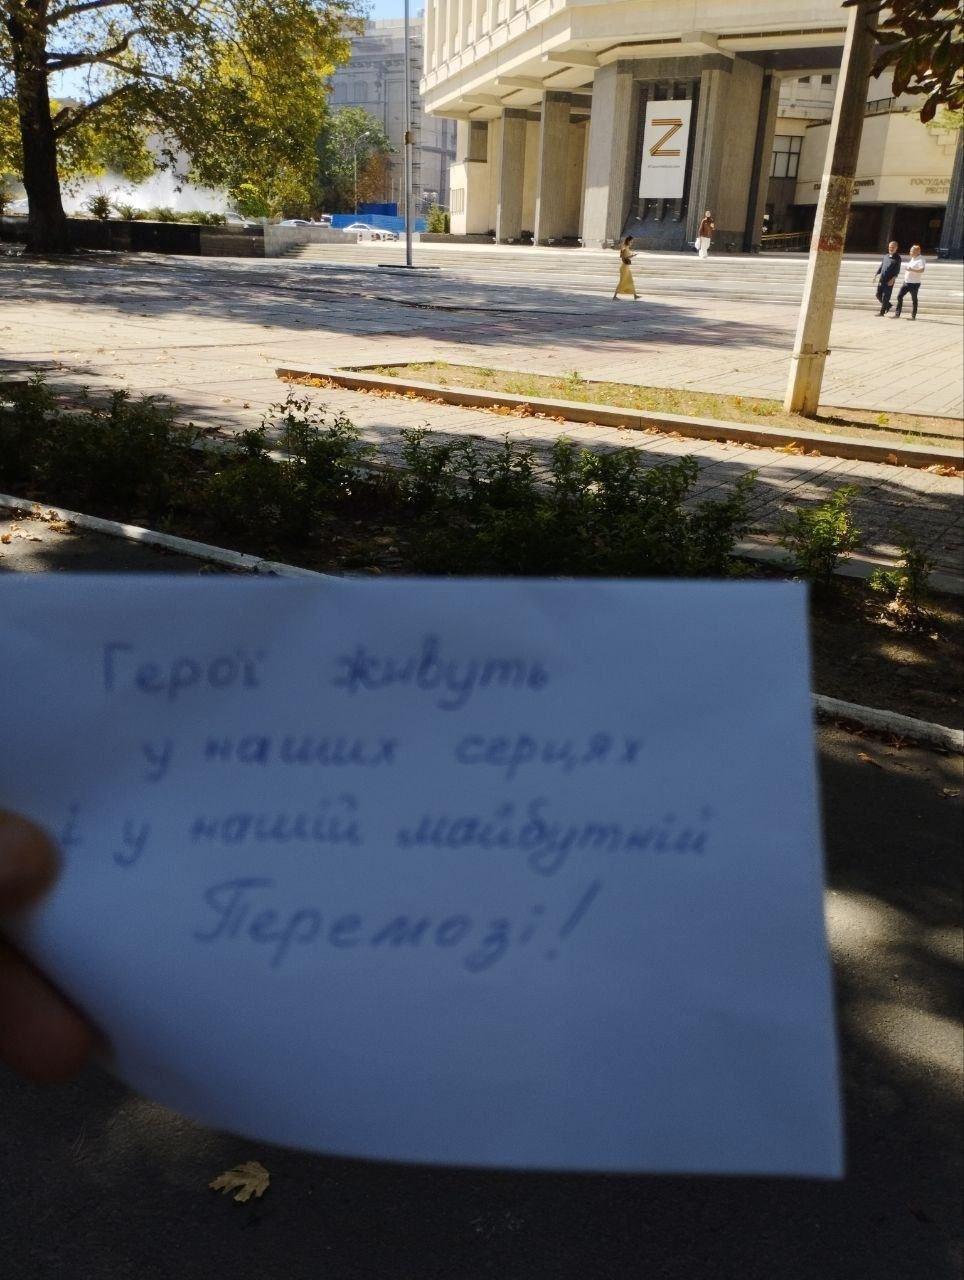 Z
ГОСУДАР
РЕСП
Герої живуть
у наших серцях
і у нашій майбутній
Перемозі!